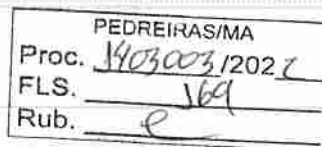 PEDREIRAS/MA
Proc. 1403003/2022
FLS. 169
Rub.